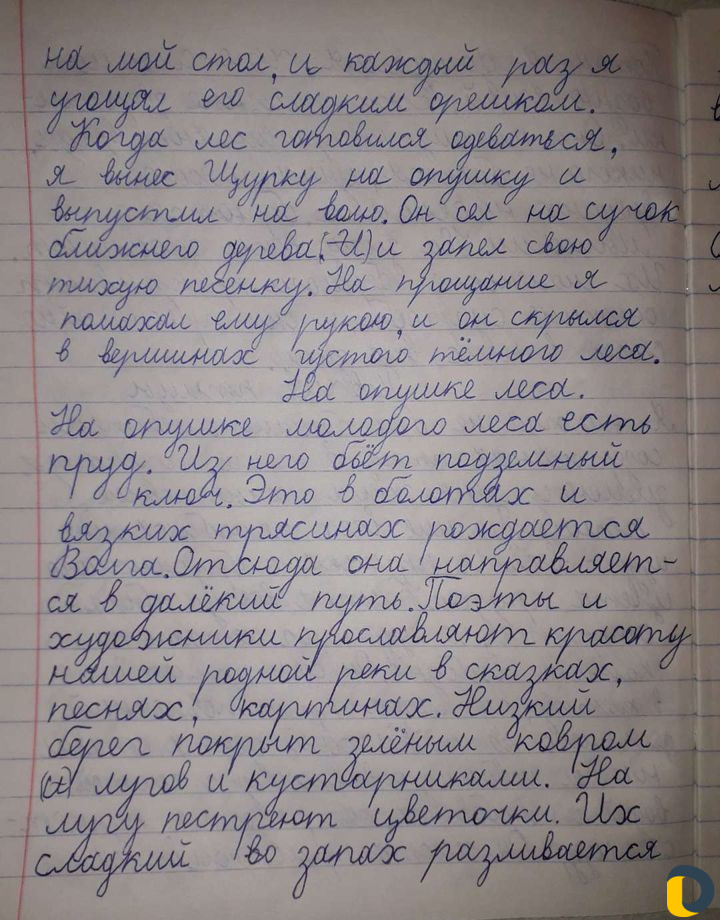 на мой стол, и каждый раз я
угощал его сладким орешком.
Когда лес готовился одеваться,
я вынес Щурку на опушку и
выпустил на волю. Он сел на сучок
ближнего дерева(. И) и запел свою
тихую песенку. На прощание я
помахал ему рукою, и он скрылся
в вершинах густого тёмного леса.
На опушке леса.
На опушке молодого леса есть
пруд. Из него бьёт подземный
ключ. Это в болотах и
вязких трясинах рождается
Волга. Отсюда она направляет-
ся в далёкий путь. Поэты и
художники прославляют красоту
нашей родной реки в сказках,
песнях, картинах. Низкий
берег покрыт зелёным ковром
лугов и кустарниками. На
лугу пестреют цветочки. Их
сладкий во запах разливается